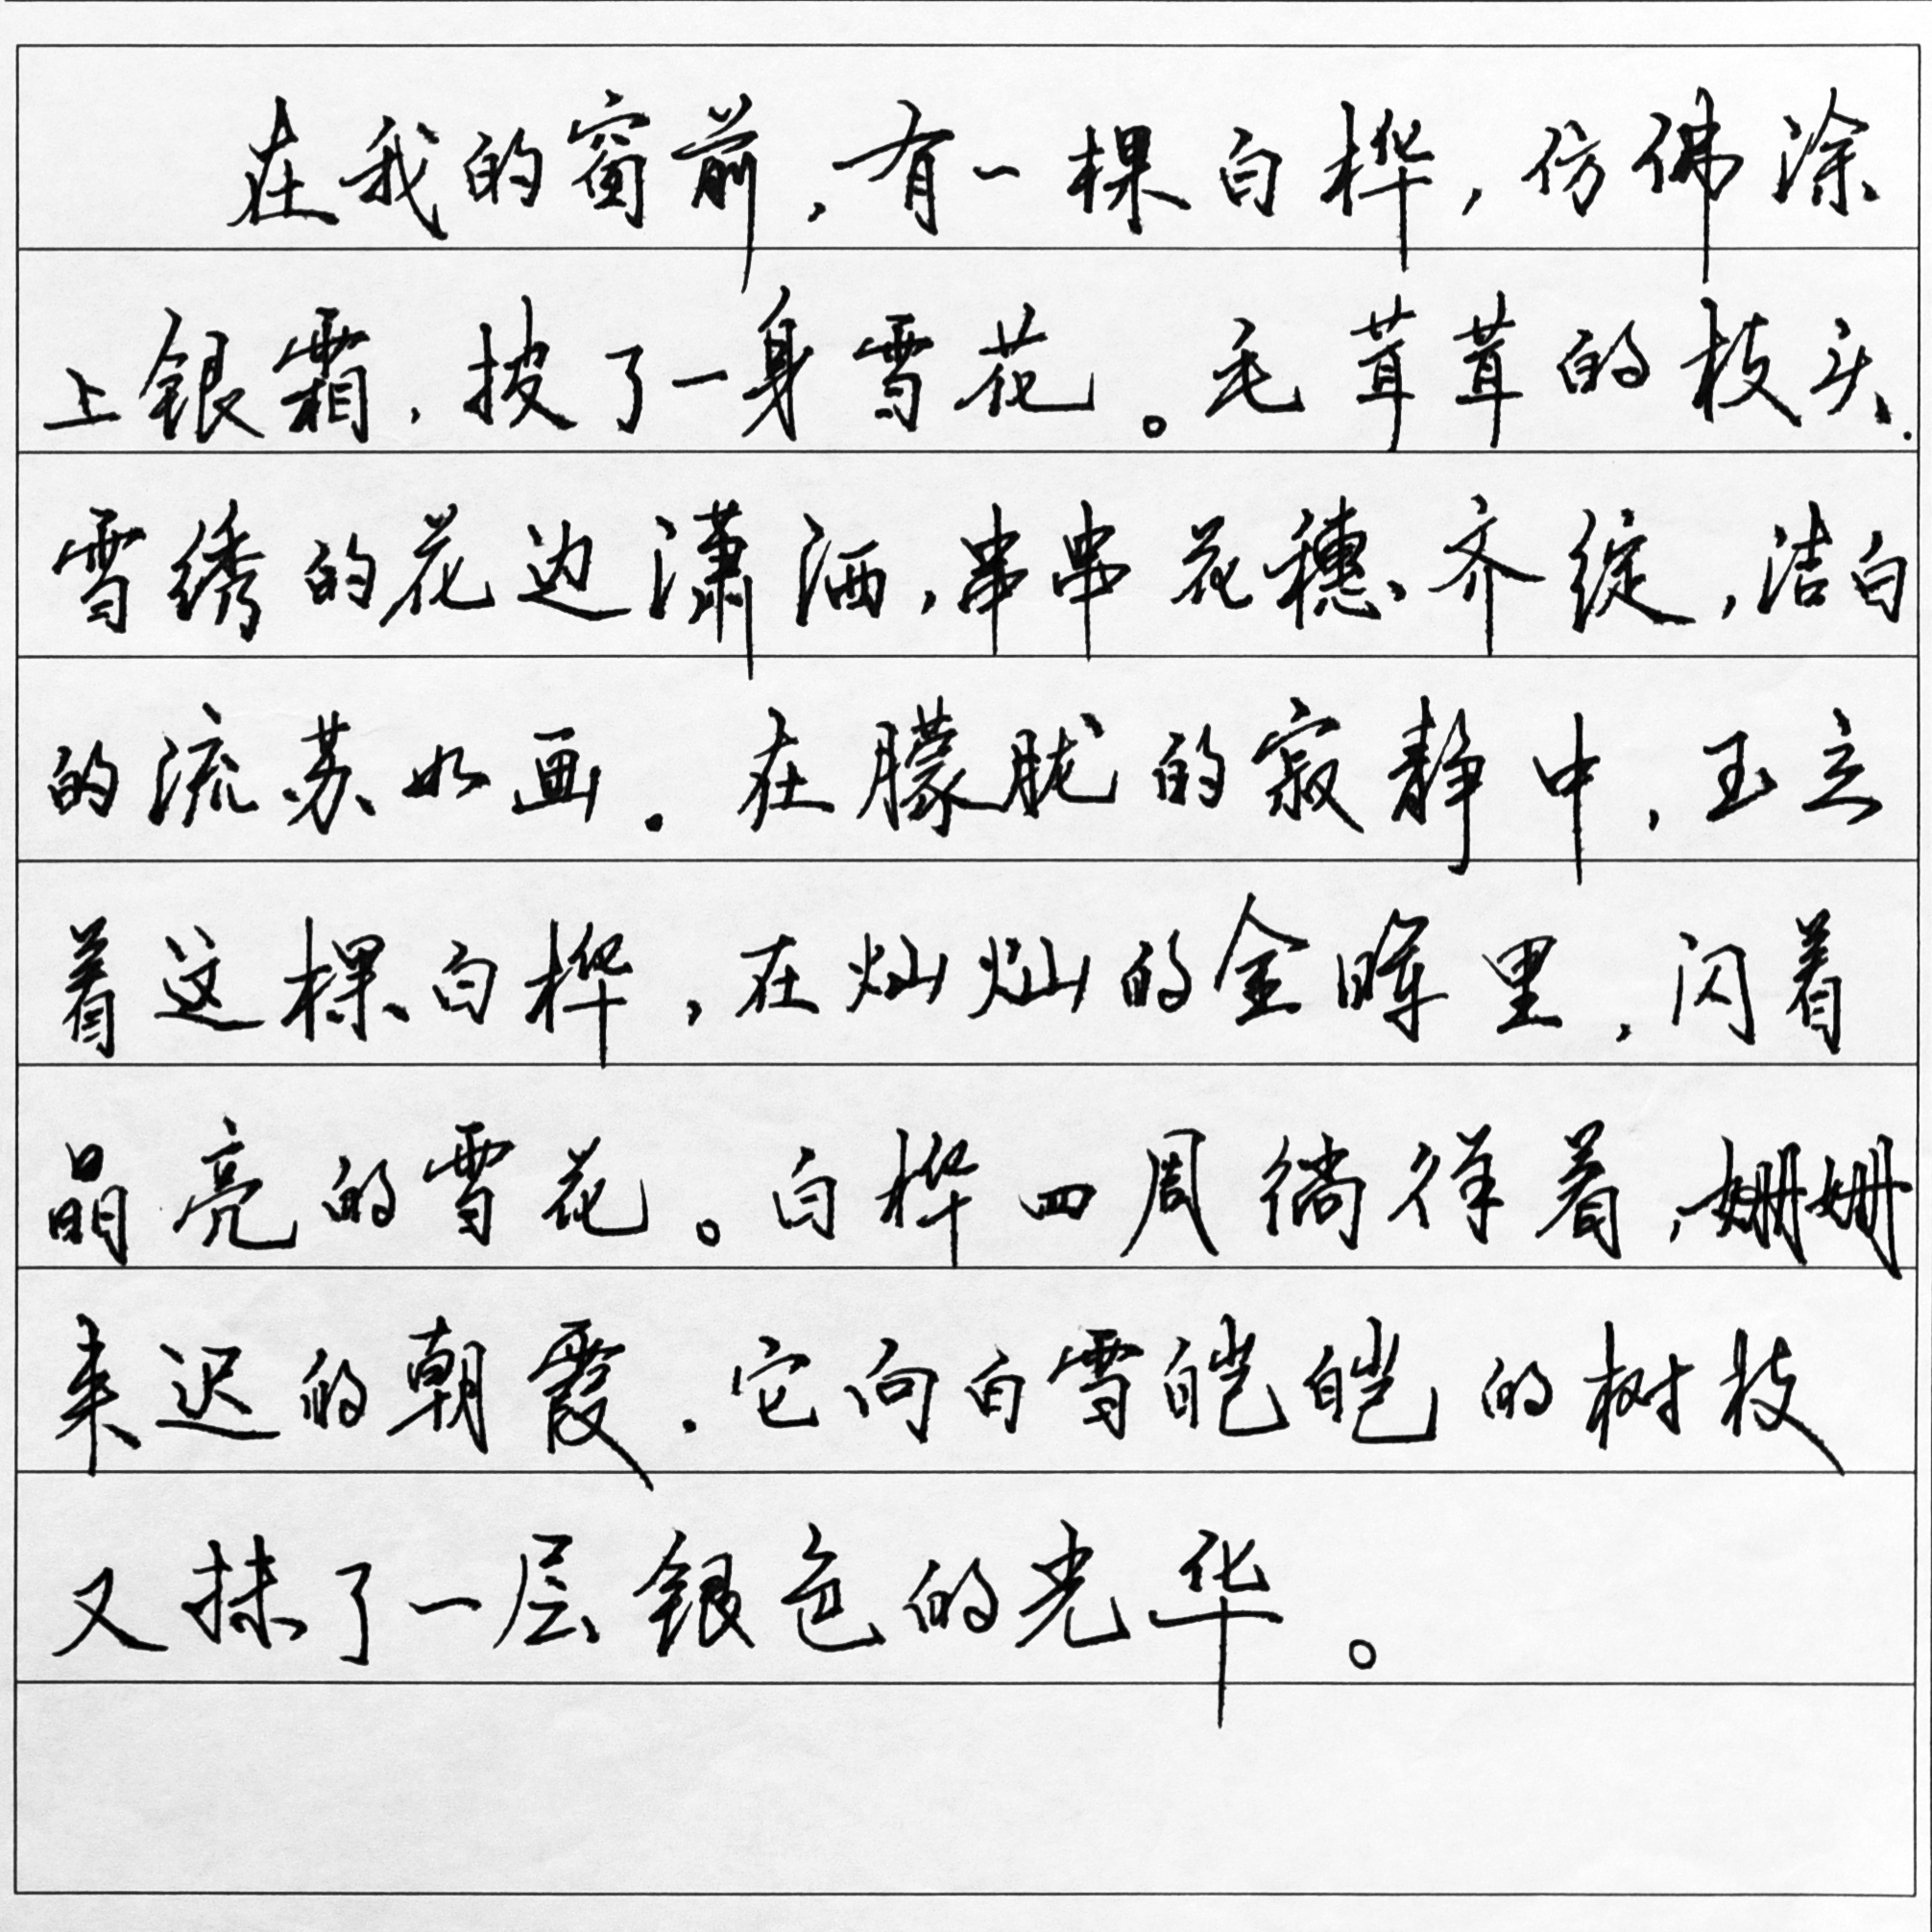 在我的窗前，有一棵白桦，仿佛涂
上银霜，披了一身雪花。毛茸茸的枝头，
雪绣的花边潇洒，串串花穗齐绽，洁白
的流苏如画。在朦胧的寂静中，玉立
着这棵白桦，在灿灿的金晖里，闪着
晶亮的雪花。白桦四周徜徉着，姗姗
来迟的朝霞，它向白雪皑皑的树枝
又抹了一层银色的光华。